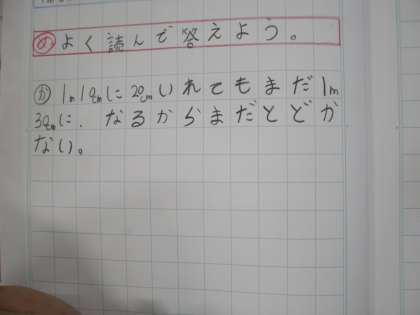 め よく読んで答えよう。
か 1m19cmに20cmいれてもまだ1m
39cmに、なるからまだとどか
ない。